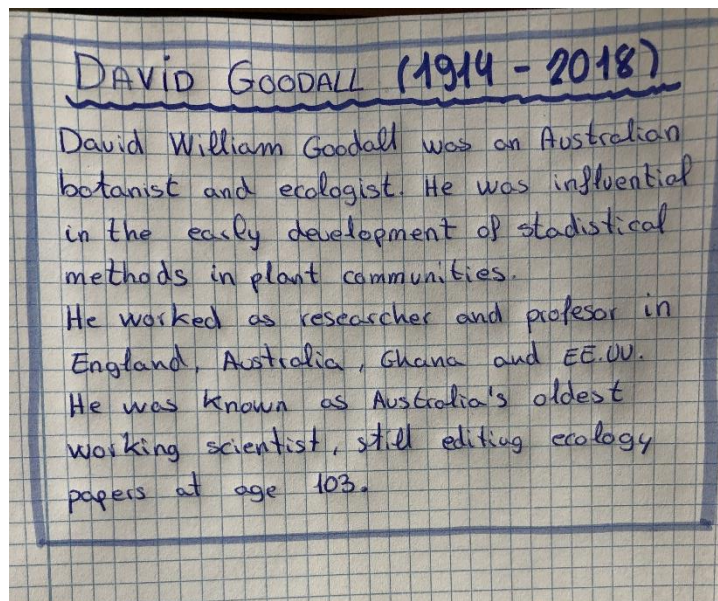 DAVID GOODALL (1914 - 2018)
David William Goodall was an Australian
botanist and ecologist. He was influential
in the early development of stadistical
methods in plant communities.
He worked as researcher and profesor in
England, Australia, Ghana and EE.UU.
He was known as Australia's oldest
working scientist, still editing ecology
papers at age 103.